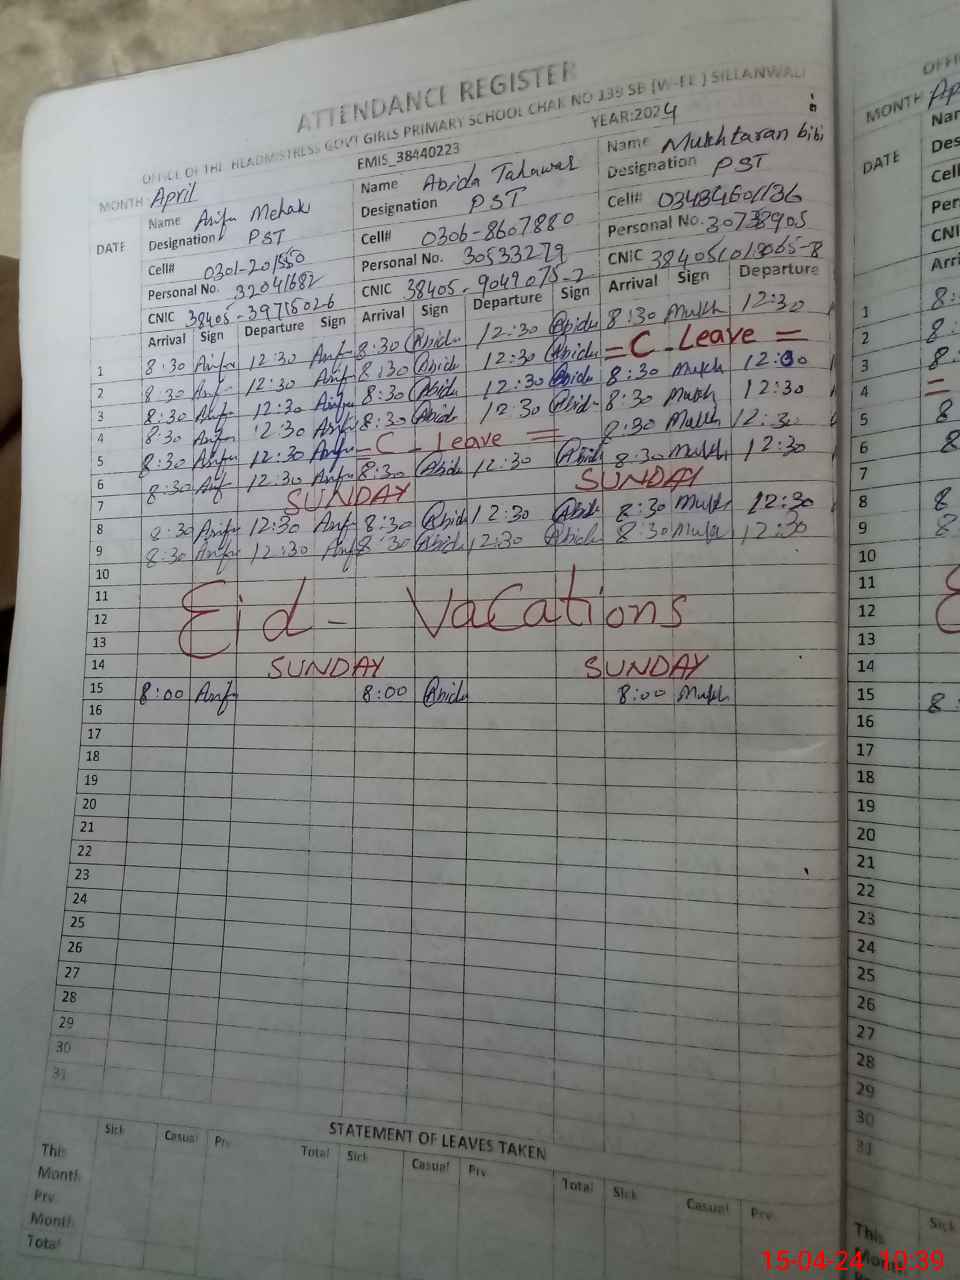 ATTENDANCE REGISTER
OFFICE OF THE HEADMISTRESS GOVT GIRLS PRIMARY SCHOOL CHAK NO 139 SB (W-EE) SILLANWALI
EMIS_38440223 YEAR:2024
MONTH: April
DATE
Name Arifa Mehak
Designation PST
Cell#
Personal No. 32041682
CNIC
Name Abida Talawat
Designation PST
Cell# 0306-8607880
Personal No. 30533279
CNIC 38405-9049075-2
Name Mukhtaran bibi
Designation PST
Cell#
Personal No. 30738905
CNIC
Arrival Sign Departure Sign Arrival Sign Departure Sign Arrival Sign Departure
1 8:30 12:30 8:30 Abida 12:30 Abida 8:30 Mukh 12:30
2 8:30 12:30 8:30 Abida 12:30 Abida =C-Leave=
3 8:30 12:30 8:30 Abida 12:30 Abida 8:30 Mukh 12:30
4 8:30 12:30 8:30 Abida 12:30 Abida 8:30 Mukh 12:30
5 8:30 12:30 =C-Leave= 8:30 Mukh 12:30
6 8:30 12:30 8:30 Abida 12:30 Abida 8:30 Mukh 12:30
7 SUNDAY SUNDAY
8 8:30 12:30 8:30 Abida 12:30 Abida 8:30 Mukh 12:30
9 8:30 12:30 8:30 Abida 12:30 Abida 8:30 Mukh 12:30
10
11
12 Eid- Vacations
13
14 SUNDAY SUNDAY
15 8:00 8:00 Abida 8:00 Mukh
16
17
18
19
20
21
22
23
24
25
26
27
28
29
30
31
STATEMENT OF LEAVES TAKEN
Sick Casual Prv Total Sick Casual Prv Total Sick Casual Prv
This Month
Prv Month
Total
MONTH
DATE
1 8:
2 8:
3 8
4 =
5 8
6 8
7
8 8
9 8
10
11
12
13
14
15 8:
16
17
18
19
20
21
22
23
24
25
26
27
28
29
30
31
Sick
This
Month
15-04-24 10:39